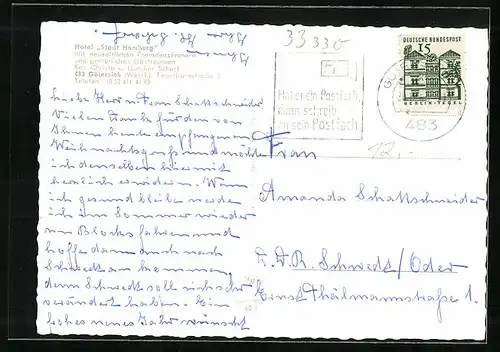 Ihnen Fr. Scharf
Hotel „Stadt Hamburg"
mit neuzeitlichen Fremdenzimmern
und gemütlichen Gasträumen
Bes. Christel u. Günther Scharf
483 Gütersloh (Westf.), Feuerbornstraße
Telefon (0 52 41)
33330
DEUTSCHE BUNDESPOST
15
BERLIN-TEGEL
Hat er ein Postfach,
dann schreib
an sein Postfach
483
12,-
Liebe Herr u. Frau Schattschneider
Vielen Dank für den von
Ihnen heute empfangenen
Weihnachtsgruß und möchte
ich denselben hiermit
herzlich erwidern. Wenn
ich gesund bleibe werde
ich im Sommer wieder
in Blocksfahren und
hoffe dann auch nach
Schwedt zu kommen
denn Schwedt soll sich sehr
verändert haben. Ein
frohes neues Jahr wünscht
Frau
Amanda Schattschneider
D.D.R. Schwedt/Oder
Ernst Thälmannstraße 1.